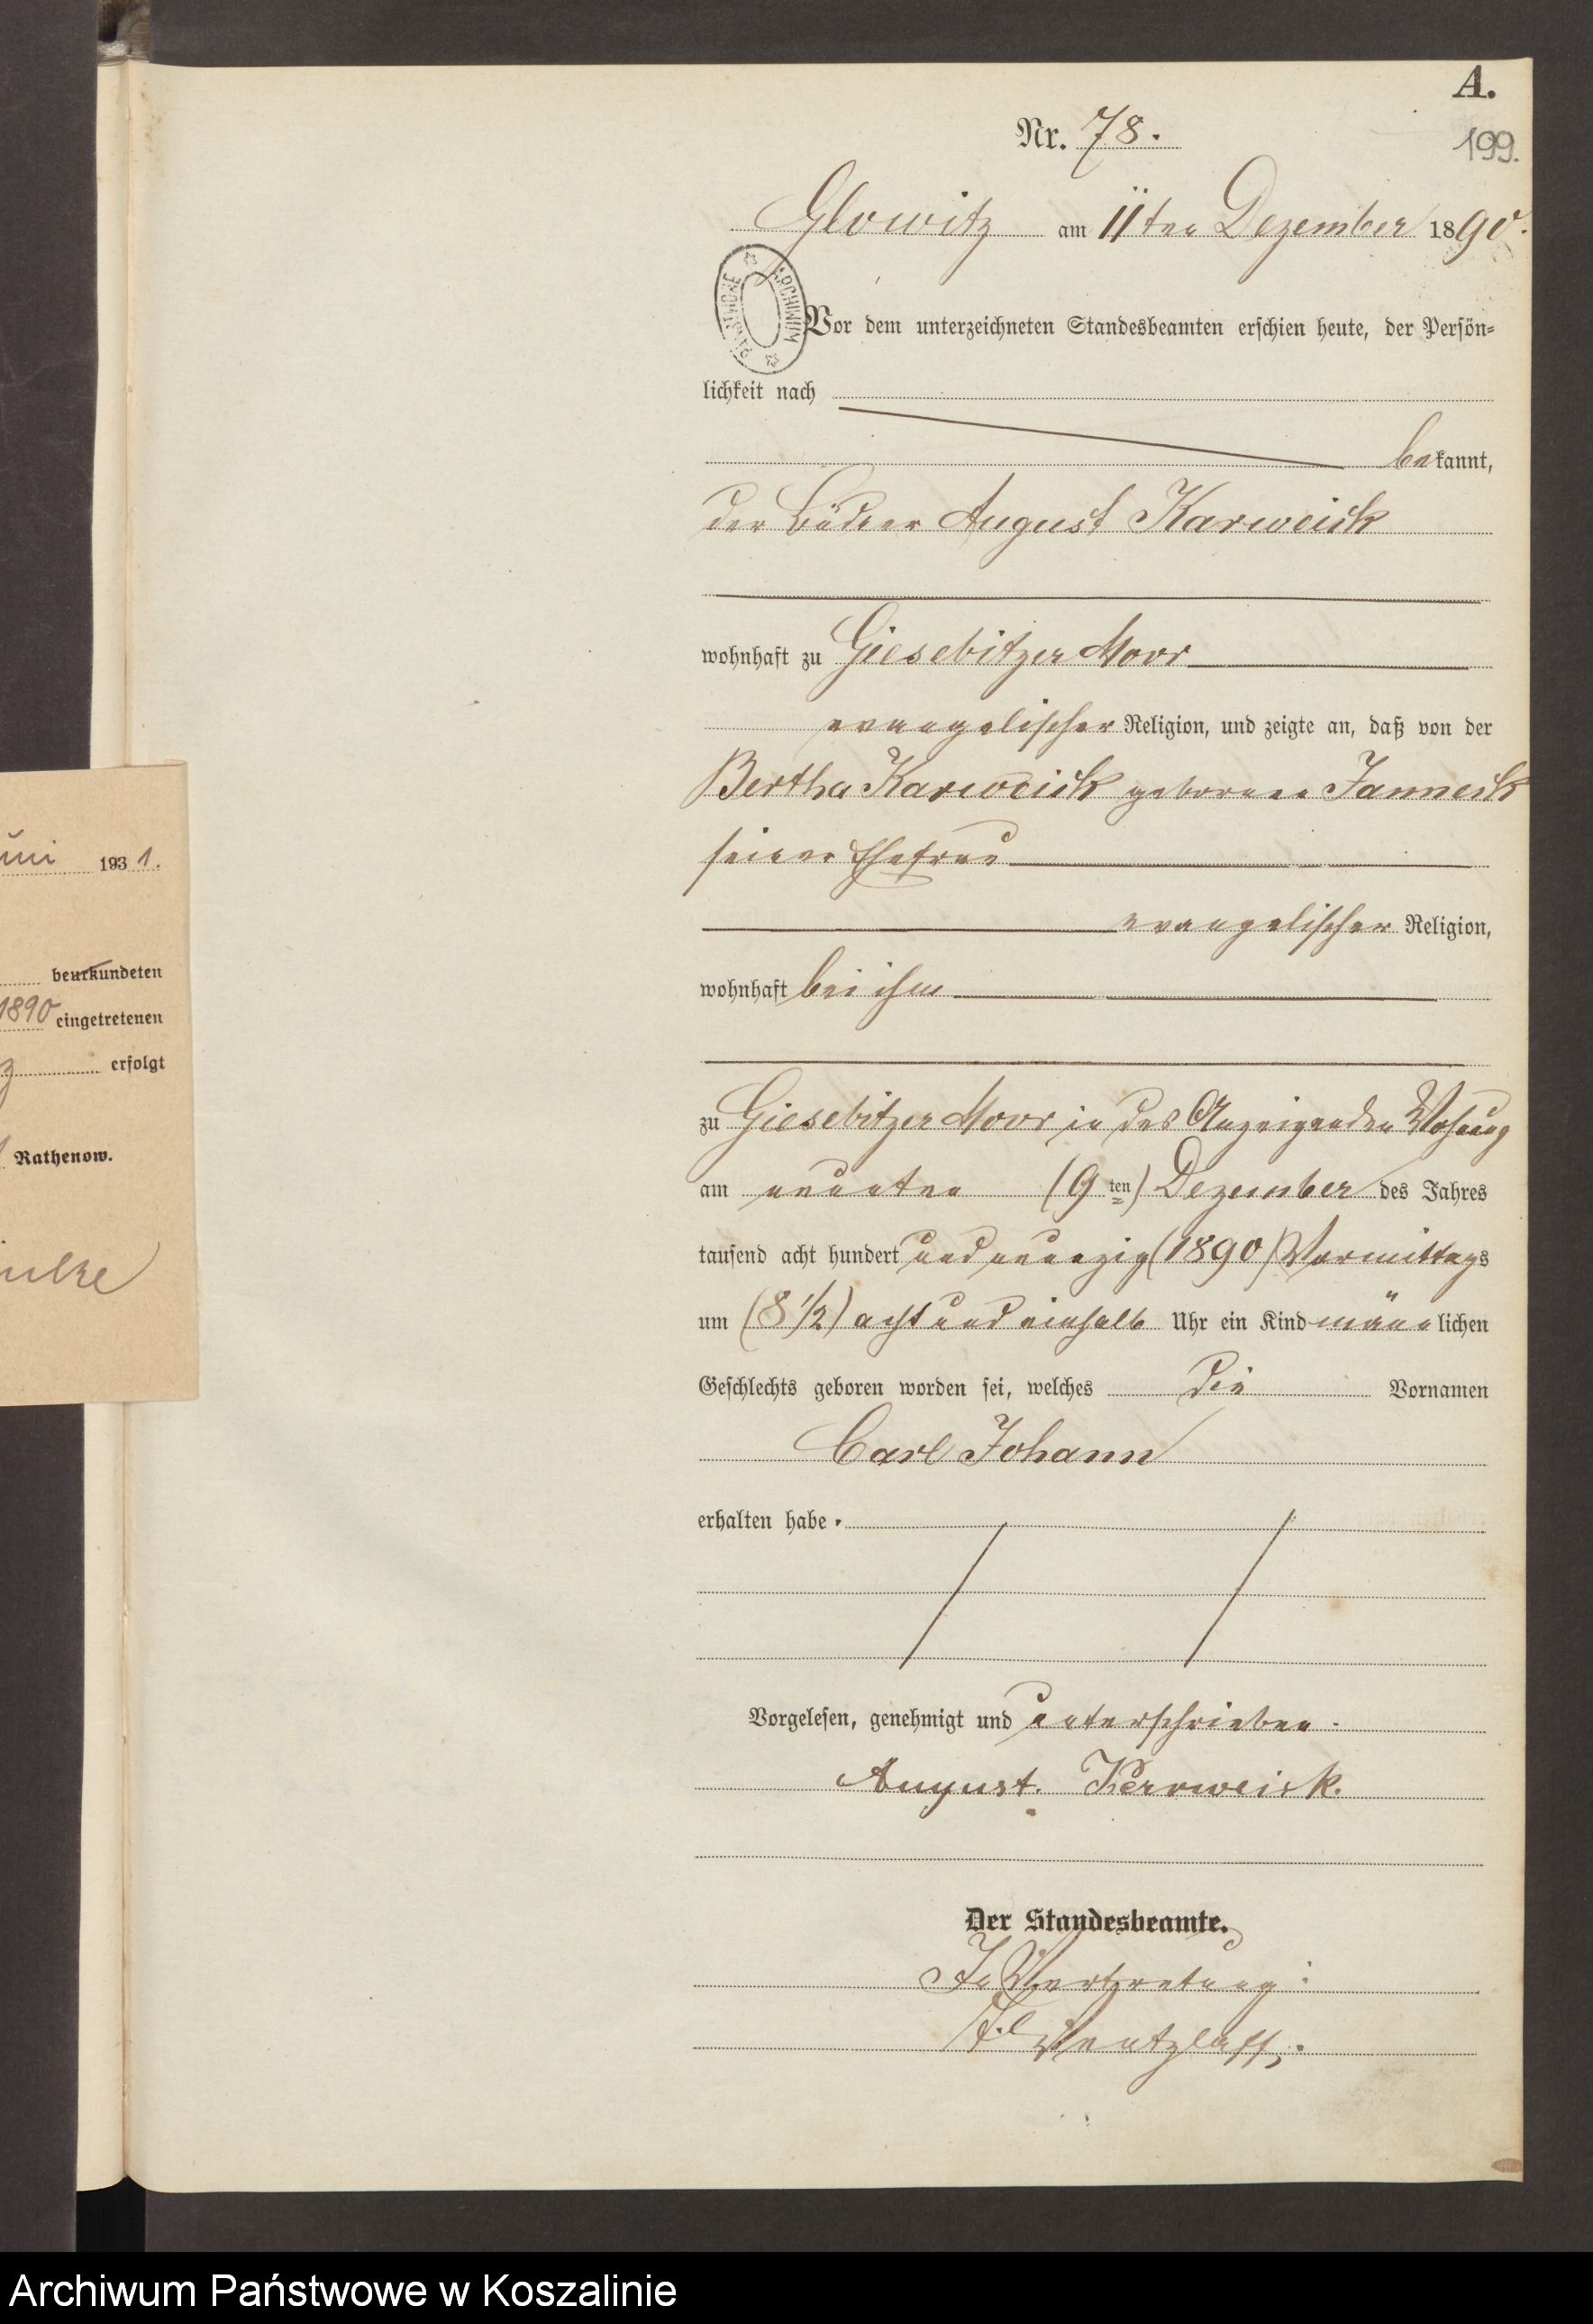 A.
Nr. 78.
199.
Glowitz am 11ten Dezember 1890.
ARCHIWUM PAŃSTWOWE
Vor dem unterzeichneten Standesbeamten erschien heute, der Persön=
lichkeit nach
bekannt,
der Büdner August Karweick
wohnhaft zu Giesebitzer Moor
evangelischer Religion, und zeigte an, daß von der
Bertha Karweick geborenen Janneck
seiner Ehefrau
evangelischer Religion,
wohnhaft bei ihm
zu Giesebitzer Moor in des Anzeigenden Wohnung
am neunten (9ten) Dezember des Jahres
tausend acht hundert und neunzig (1890) Vormittags
um (8 1/2) acht und einhalb Uhr ein Kind männlichen
Geschlechts geboren worden sei, welches die Vornamen
Carl Johann
erhalten habe.
Vorgelesen, genehmigt und unterschrieben.
August. Karweick.
Der Standesbeamte.
In Vertretung:
Wentzlaff.
uni 1931.
beurkundeten
1890 eingetretenen
erfolgt
Rathenow.
Archiwum Państwowe w Koszalinie